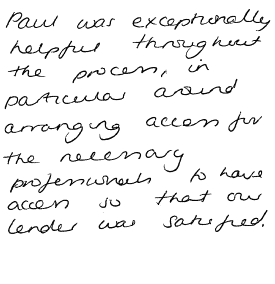 Paul was exceptionally
helpful throughout
the process, in
particular around
arranging access for
the necessary
professionals to have
access so that our
lender was satisfied.